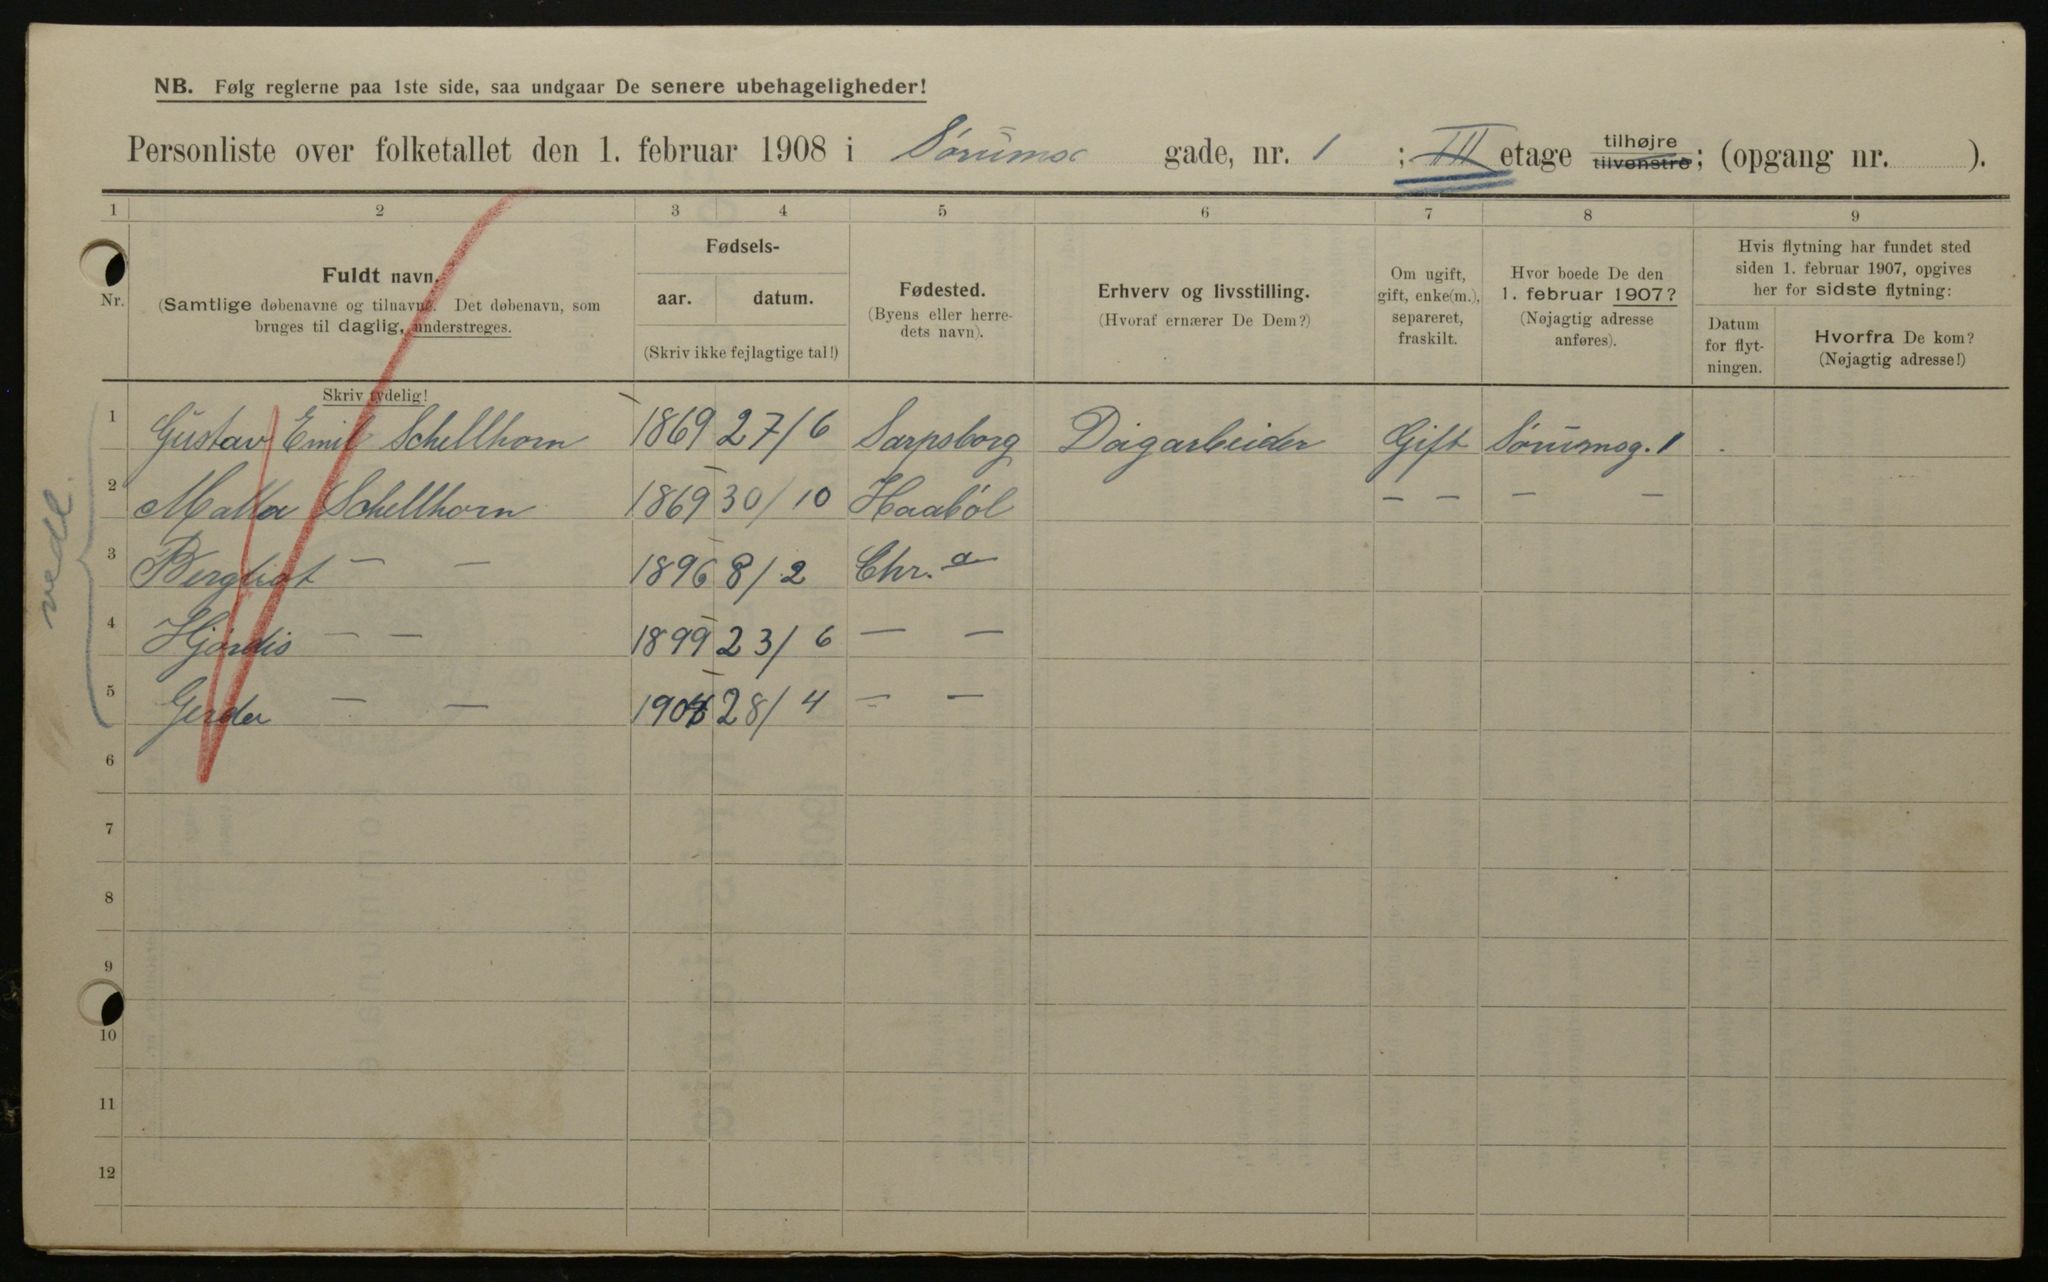 NB. Følg reglerne paa 1ste side, saa undgaar De senere ubehageligheder!
Personliste over folketallet den 1. februar 1908 i Sørums gade, nr. 1 ; III etage tilhøjre tilvenstre; (opgang nr. ).
1 2 3 4 5 6 7 8 9
Nr.
Fuldt navn.
(Samtlige døbenavne og tilnavne. Det døbenavn, som
bruges til daglig, understreges.
Fødsels-
aar. datum.
(Skriv ikke fejlagtige tal!)
Fødested.
(Byens eller herre-
dets navn).
Erhverv og livsstilling.
(Hvoraf ernærer De Dem?)
Om ugift,
gift, enke(m.),
separeret,
fraskilt.
Hvor boede De den
1. februar 1907?
(Nøjagtig adresse
anføres).
Hvis flytning har fundet sted
siden 1. februar 1907, opgives
her for sidste flytning:
Datum
for flyt-
ningen.
Hvorfra De kom?
(Nøjagtig adresse!)
Skriv tydelig!
1 Gustav Emil Schellhorn 1869 27/6 Sarpsborg Dagarbeider Gift Sørumsg. 1
2 Schellhorn 1869 30/10 Haabøl — — — —
3 Bergliot — — 1896 8/2 Chr.a
4 Hjördis — — 1899 23/6 — —
5 Gerda — — 28/4 — —
6
7
8
9
10
11
12
vedl.